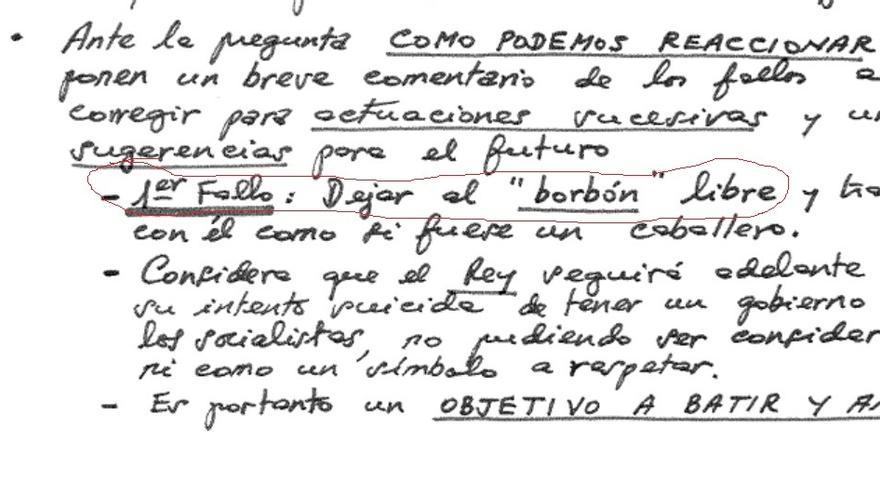 • Ante la pregunta COMO PODEMOS REACCIONAR
ponen un breve comentario de los fallos a
corregir para actuaciones sucesivas y un
sugerencias para el futuro
- 1er Fallo: Dejar al "borbón" libre y tra
con él como si fuese un caballero.
- Considera que el Rey seguirá adelante
su intento suicida de tener un gobierno
los socialistas, no pudiendo ser consider
ni como un símbolo a respetar.
- Es portanto un OBJETIVO A BATIR Y AN